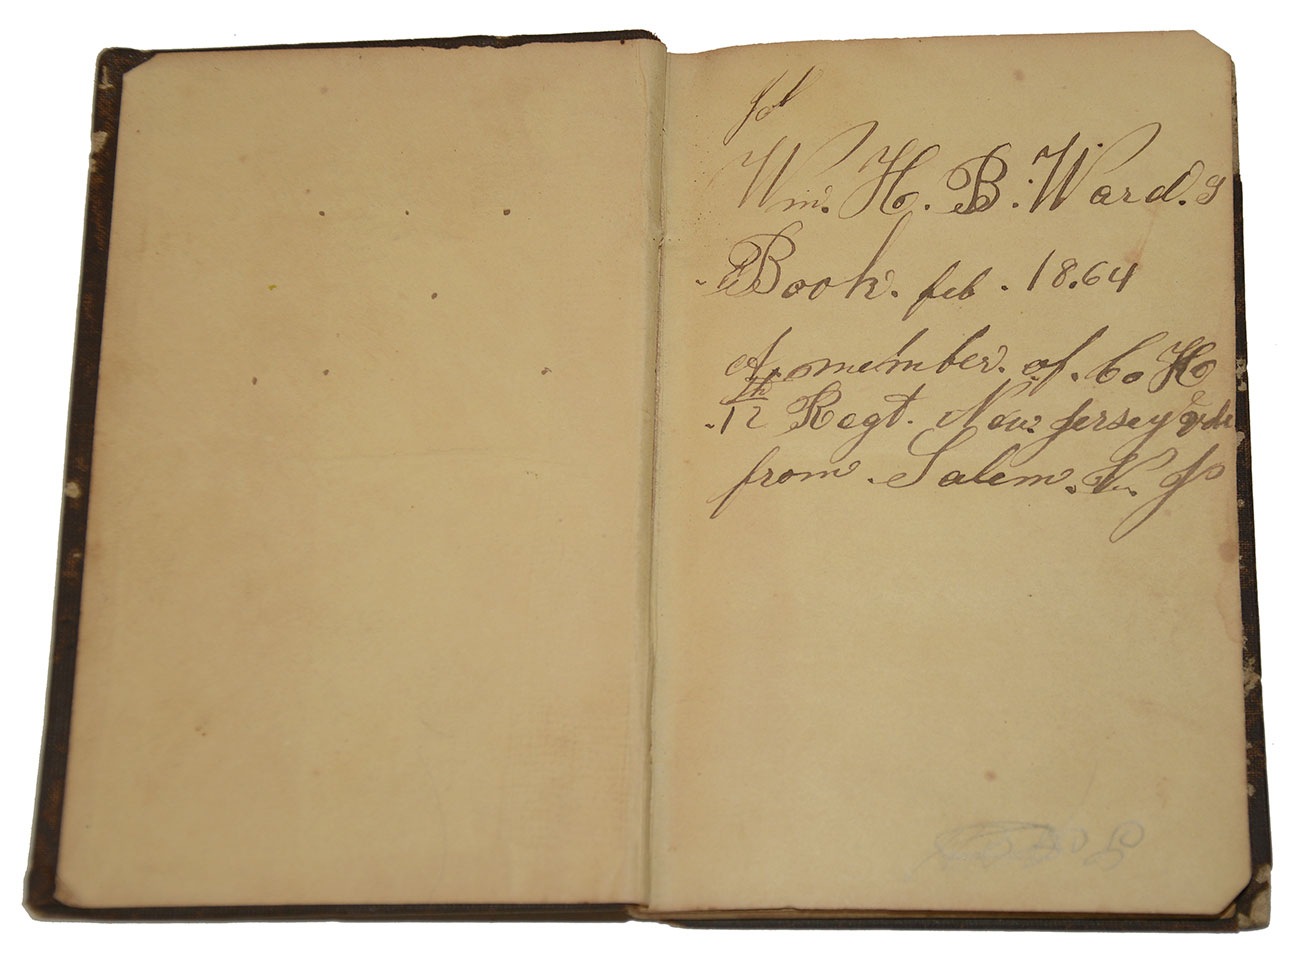 Wm. H. B. Ward.s
Book. feb. 1864
A. member. of. Co. H
12th Regt. New. Jersey Vols
from. Salem. N. J